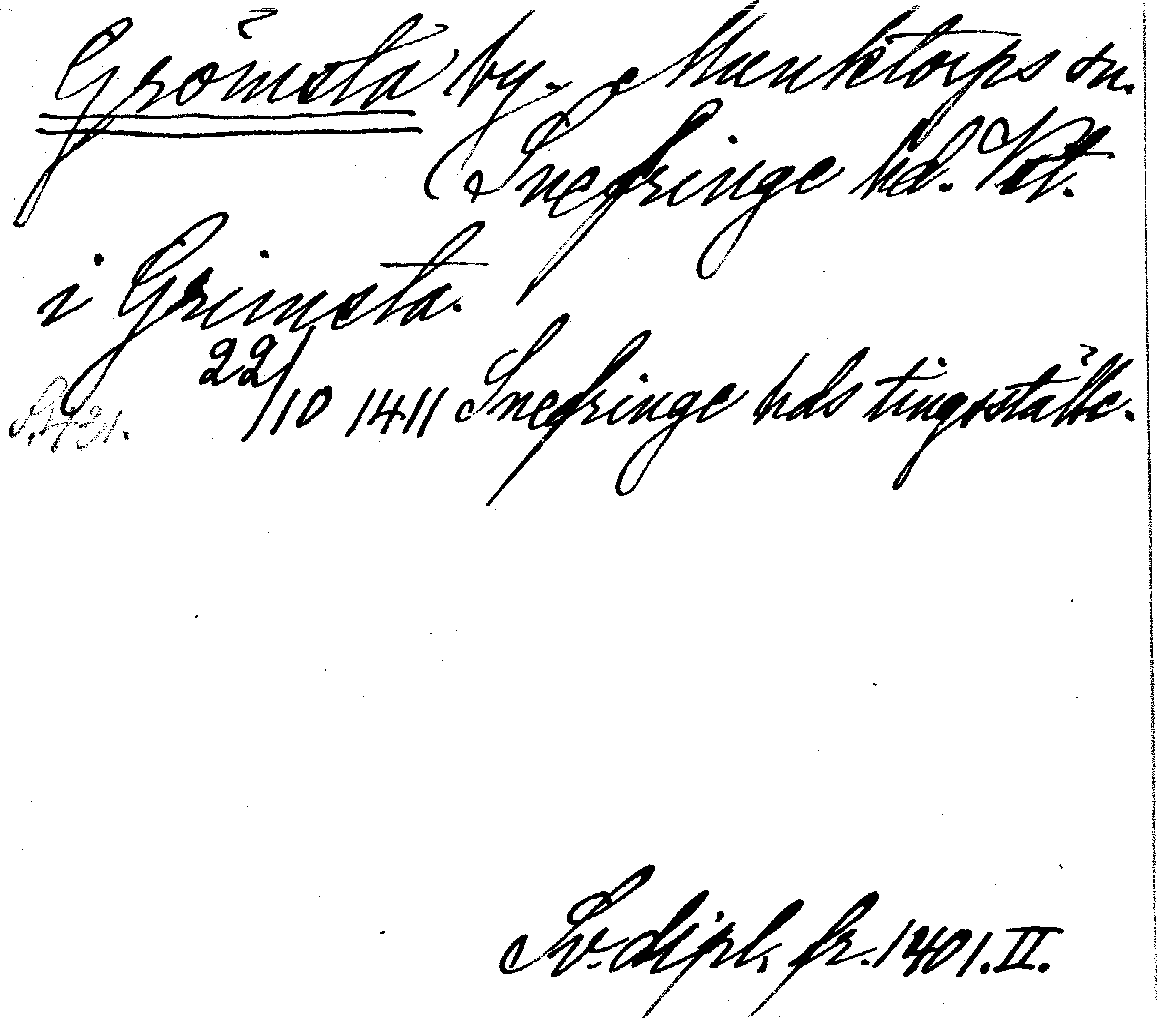 Grömsta by. Munktorps sn.
(Snefringe hd. Vstm.
i Grimsta.
22/10 1411 Snefringe hds tingställe.
S. 431.
Sv. dipl. fr. 1401. II.